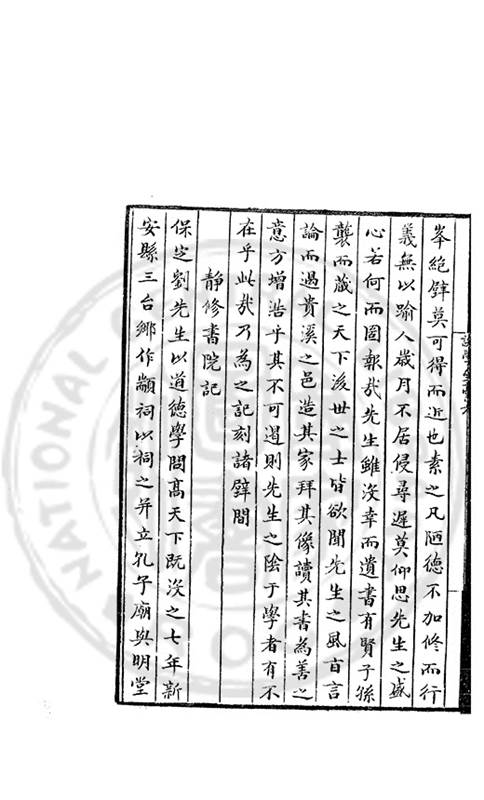 峯絶壁莫可得而近也素之凡陋德不加修而行
義無以踰人歳月不居侵尋遲莫仰思先生之盛
心若何而圖報㢤先生雖沒幸而遺書有賢子孫
襲而蔵之天下後世之士皆欲聞先生之風旨言
論而過貴溪之邑造其家拜其像讀其書為善之
意方增浩乎其不可遏則先生之隂于學者有不
在乎此㢤乃為之記刻諸壁間
靜修書院記
保定劉先生以道德學問髙天下既沒之七年新
安縣三台鄉作顓祠以祠之并立孔子廟與明堂
NATIONAL